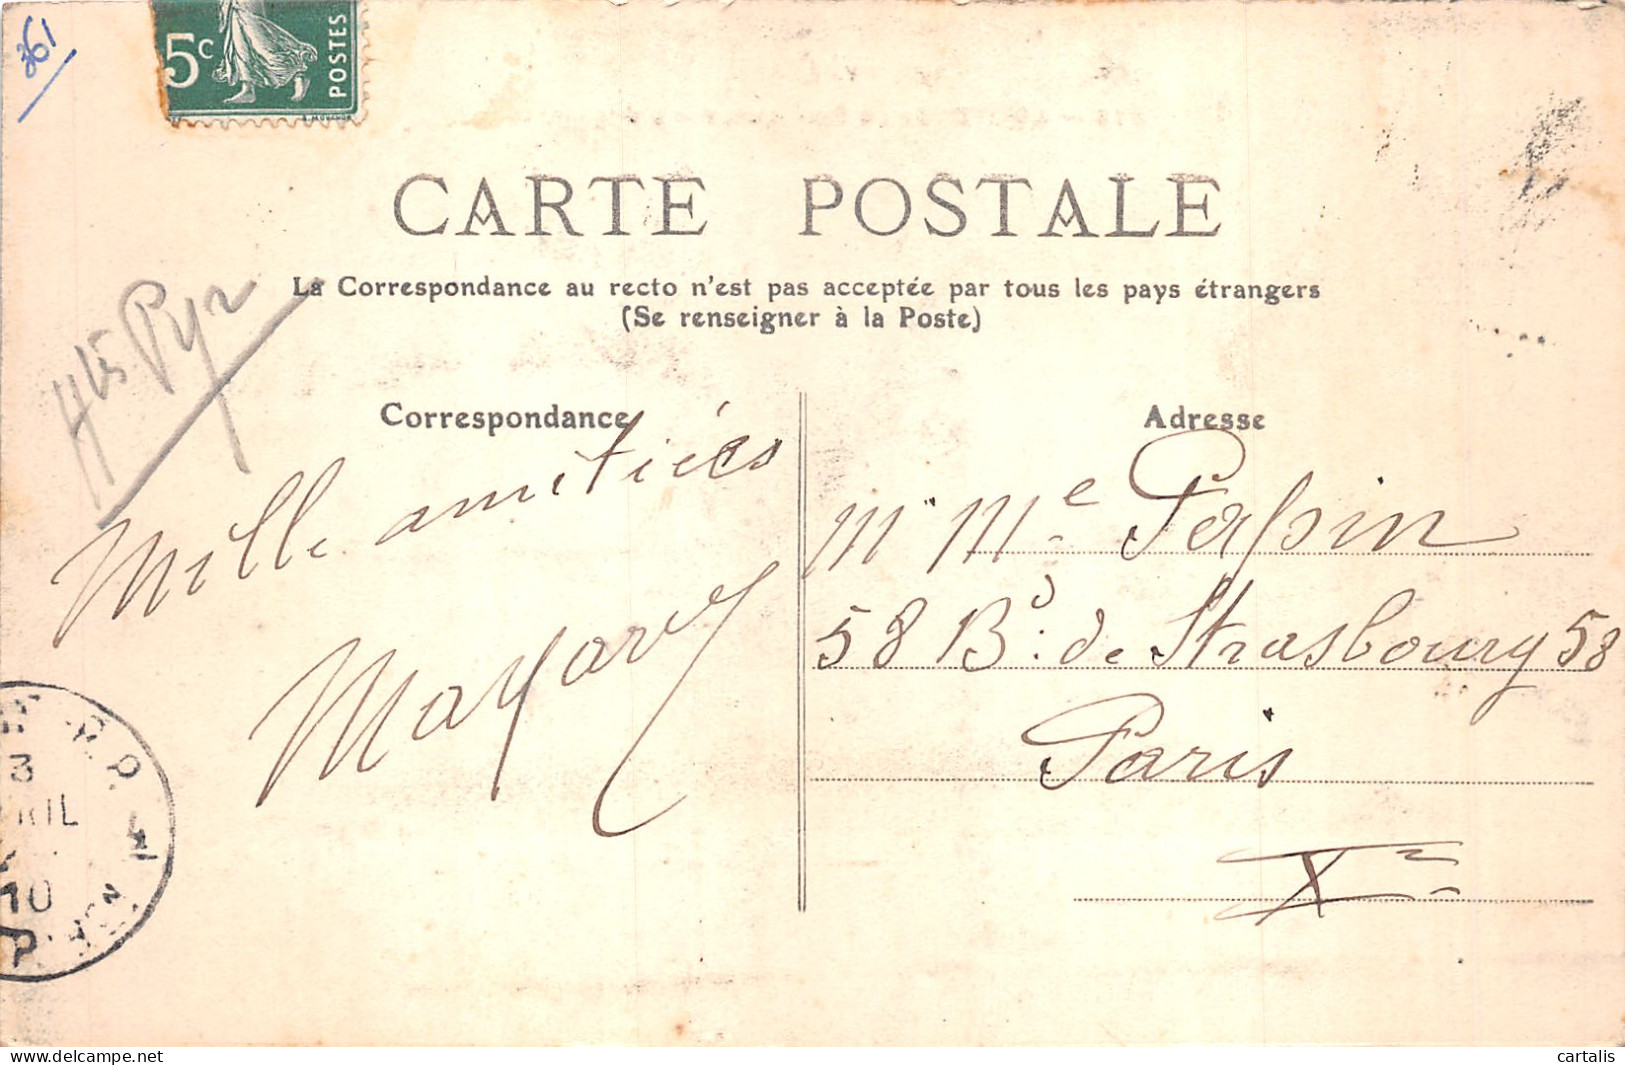 361
5c
POSTES
CARTE POSTALE
La Correspondance au recto n'est pas acceptée par tous les pays étrangers
(Se renseigner à la Poste)
Htes Pyr
Correspondance
Mille amitiés
Adresse
M. Mme Papin
58 Bd. de Strasbourg 58
Paris
Xe
3
RIL
10
delcampe.net
cartalis